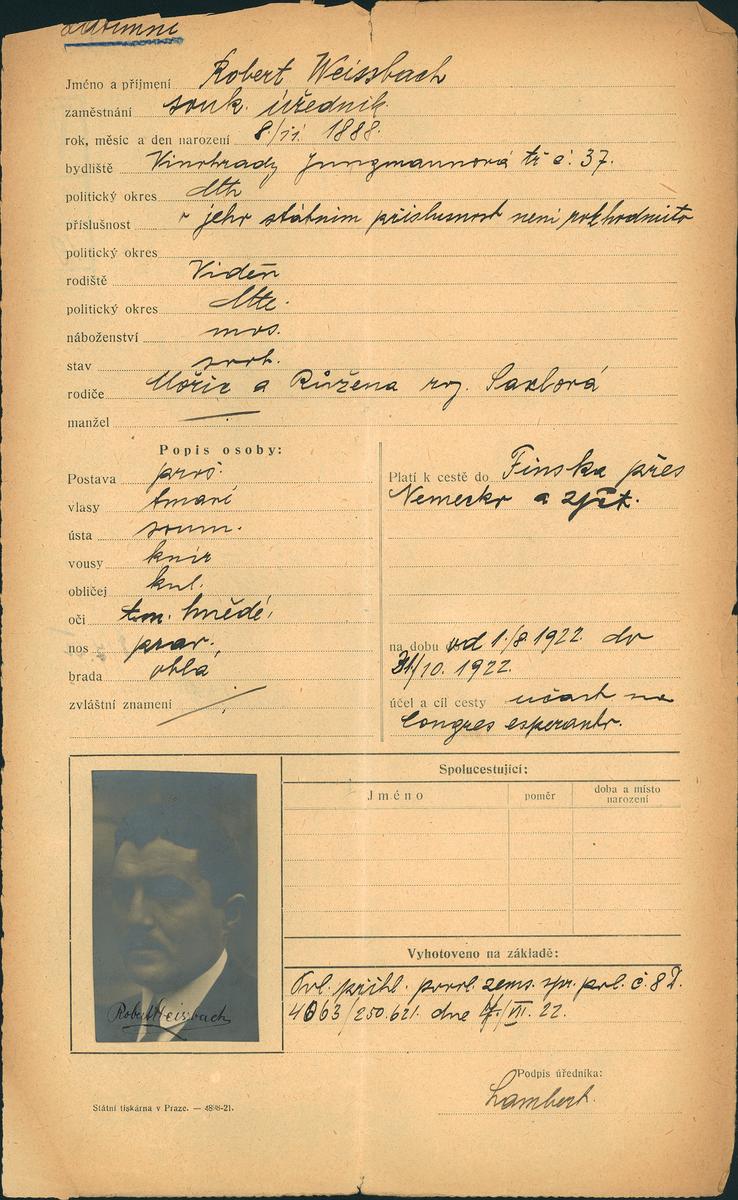 Jméno a příjmení Robert Weissbach
zaměstnání souk. úředník
rok, měsíc a den narození 8./11. 1888.
bydliště Vinohrady Jungmannová tř č. 37.
politický okres dtto
příslušnost o jeho státním příslušnost není rozhodnuto
politický okres
rodiště Videň
politický okres dtto.
náboženství mos.
stav svob.
rodiče Mořic a Růžena roz. Saxlová
manžel
Popis osoby:
Postava pros.
vlasy tmavé
ústa soum.
vousy knír
obličej kul.
oči tm. hnědé,
nos prav.
brada oblá
zvláštní znamení
Platí k cestě do Finska přes
Nemecko a zpět.
na dobu od 1./8 1922. do
31/10. 1922.
účel a cíl cesty účast na
Congres esperanto.
Spolucestující:
Jméno poměr doba a místo
narození
Robert Weissbach
Vyhotoveno na základě:
Pol. přihl. povol. zems. spr. pol. č. 8 D.
4063/250.621. dne 4/VII. 22.
Podpis úředníka:
Lambert.
Státní tiskárna v Praze. — 4898-21.